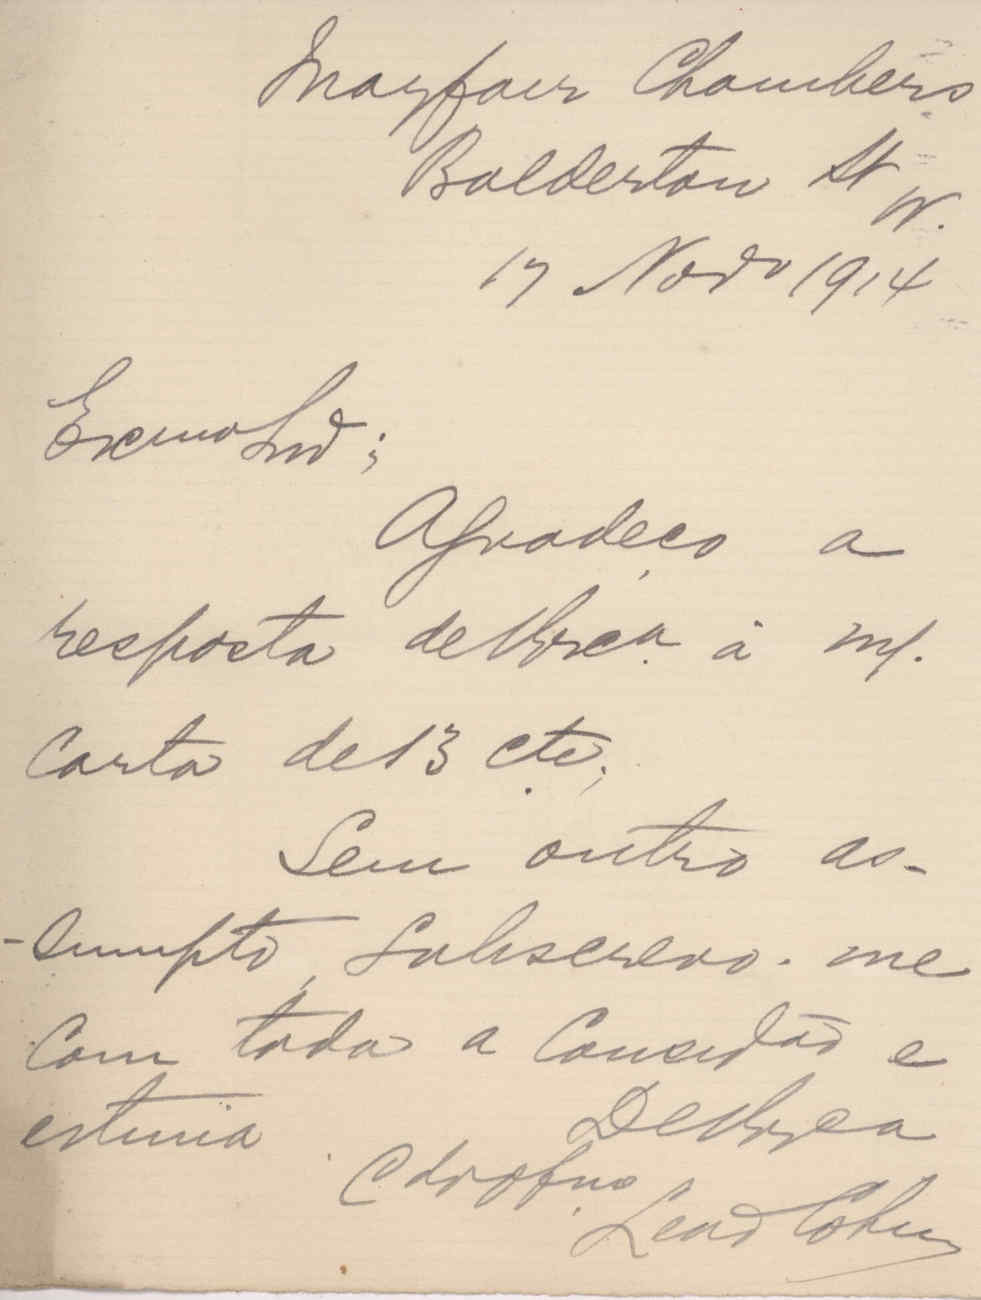 Mayfair Chambers
Balderton St
W.
17 Novo 1914
Exmo Snr;
Agradeço a
resposta de V Exca á mª.
carta de 13 cte;
Sem outro as-
-sumpto, subscrevo-me
com toda a Considão e
estima De V Exca
Cdo